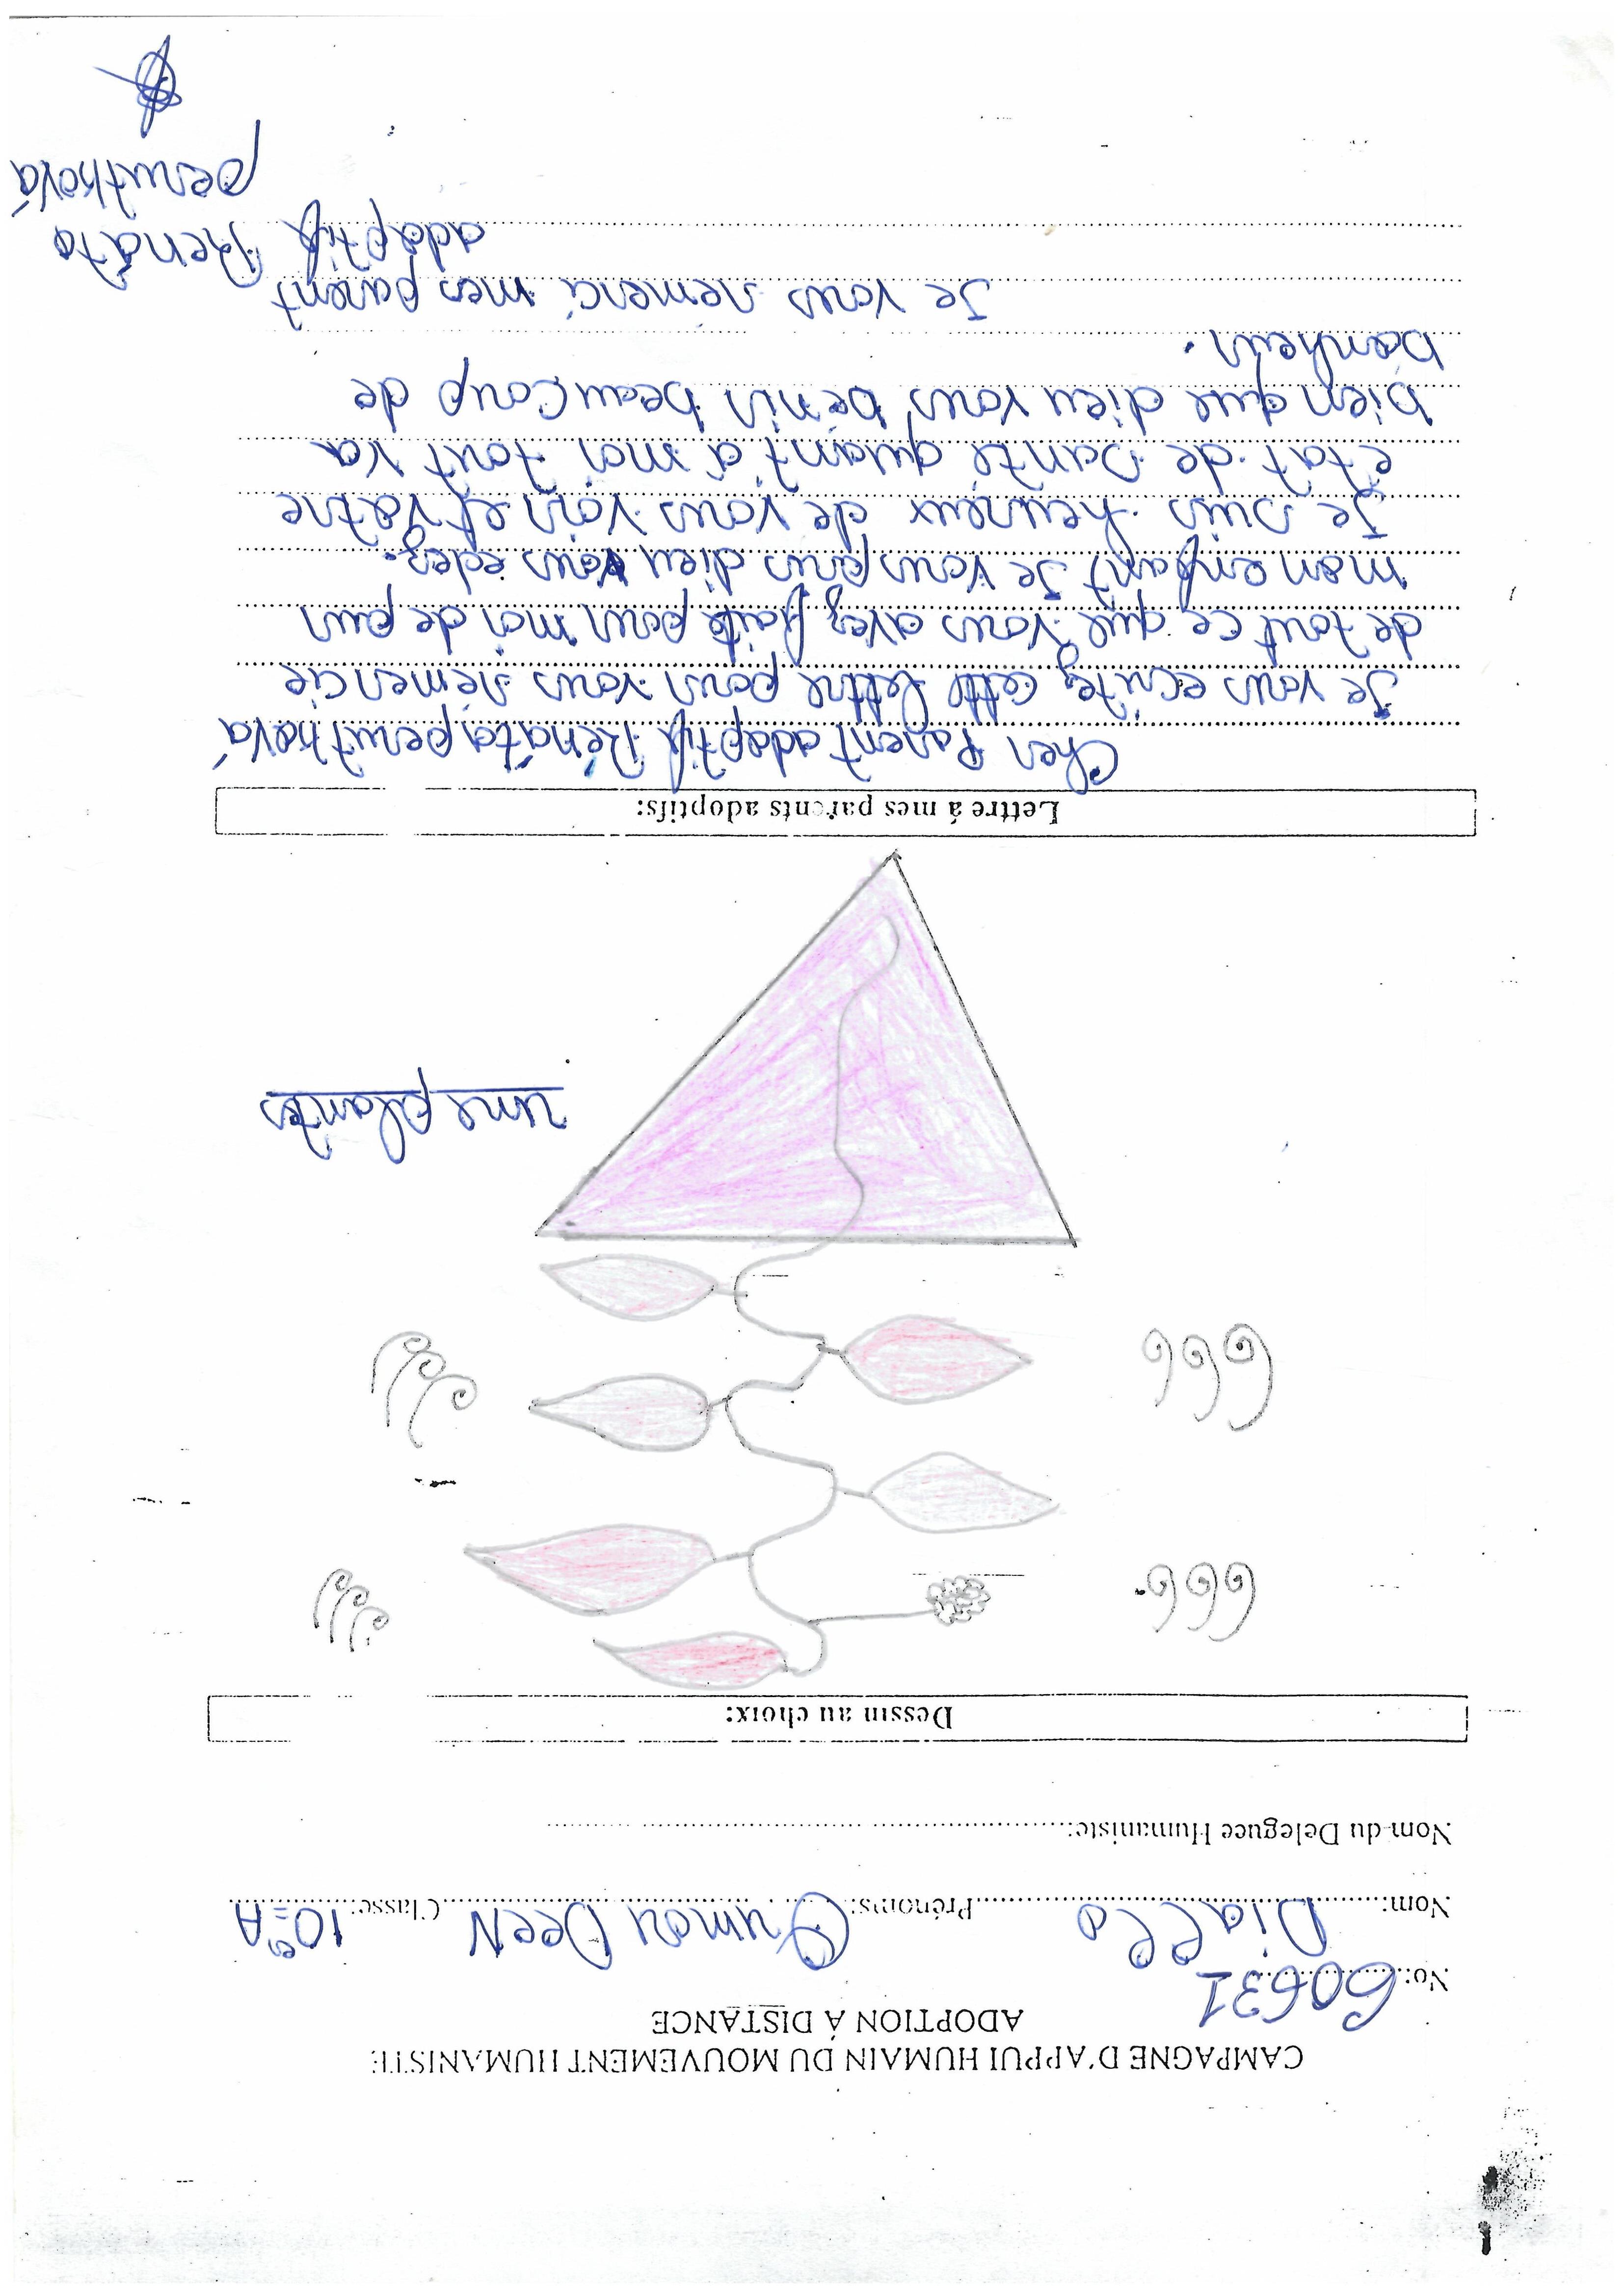 CAMPAGNE D'APPUI HUMAIN DU MOUVEMENT HUMANISTE
ADOPTION À DISTANCE
No: 60631
Nom: Diallo Prénoms: Oumou Deen Classe: 10eA
Nom du Deleguee Humaniste:
Dessin au choix:
une plantes
Lettre à mes parents adoptifs:
Cher Parent adoptif Renáta penuthová
Je vous ecritez cette lettre pour vous remercie
de tout ce que vous avez faite pour moi de puis
mon enfant Je vous pris dieu vous edez.
Je suis heureux de vous voir et vôtre
etat de Sante quant à moi tout va
bien que dieu vous bénis beaucoup de
bonheur.
Je vous remerci mes parent
adoptif Renáta
penuthová